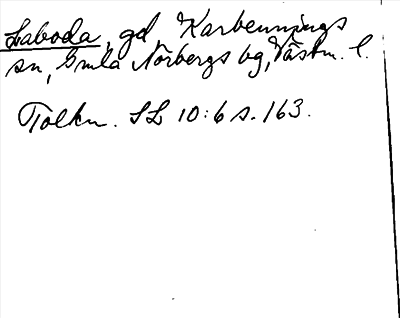 Laboda, gd, Karbennings
sn, Gmla Norbergs bg, Västm. l.
Tolkn. SL 10:6 s. 163.